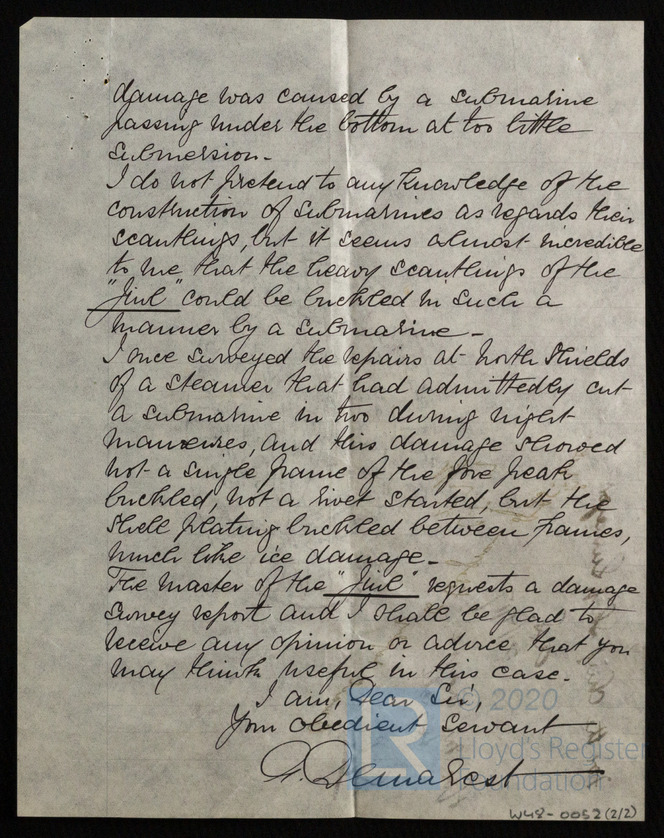 damage was caused by a submarine
passing under the bottom at too little
submersion.-
I do not pretend to any knowledge of the
construction of submarines as regards their
scantlings, but it seems almost incredible
to me that the heavy scantlings of the
"Jiul" could be buckled in such a
manner by a submarine.-
I once surveyed the repairs at North Shields
of a steamer that had admittedly cut
a submarine in two during night
manœuvres, and this damage showed
not a single frame of the fore peak
buckled, not a rivet started, but the
shell plating buckled between frames,
much like ice damage.-
The master of the "Jiul" requests a damage
survey report and I shall be glad to
receive any opinion or advice that you
may think useful in this case.
I am, Dear Sir,
Your obedient Servant
Demarest
© 2020
Lloyd's Register
Foundation
W48-0052 (2/2)